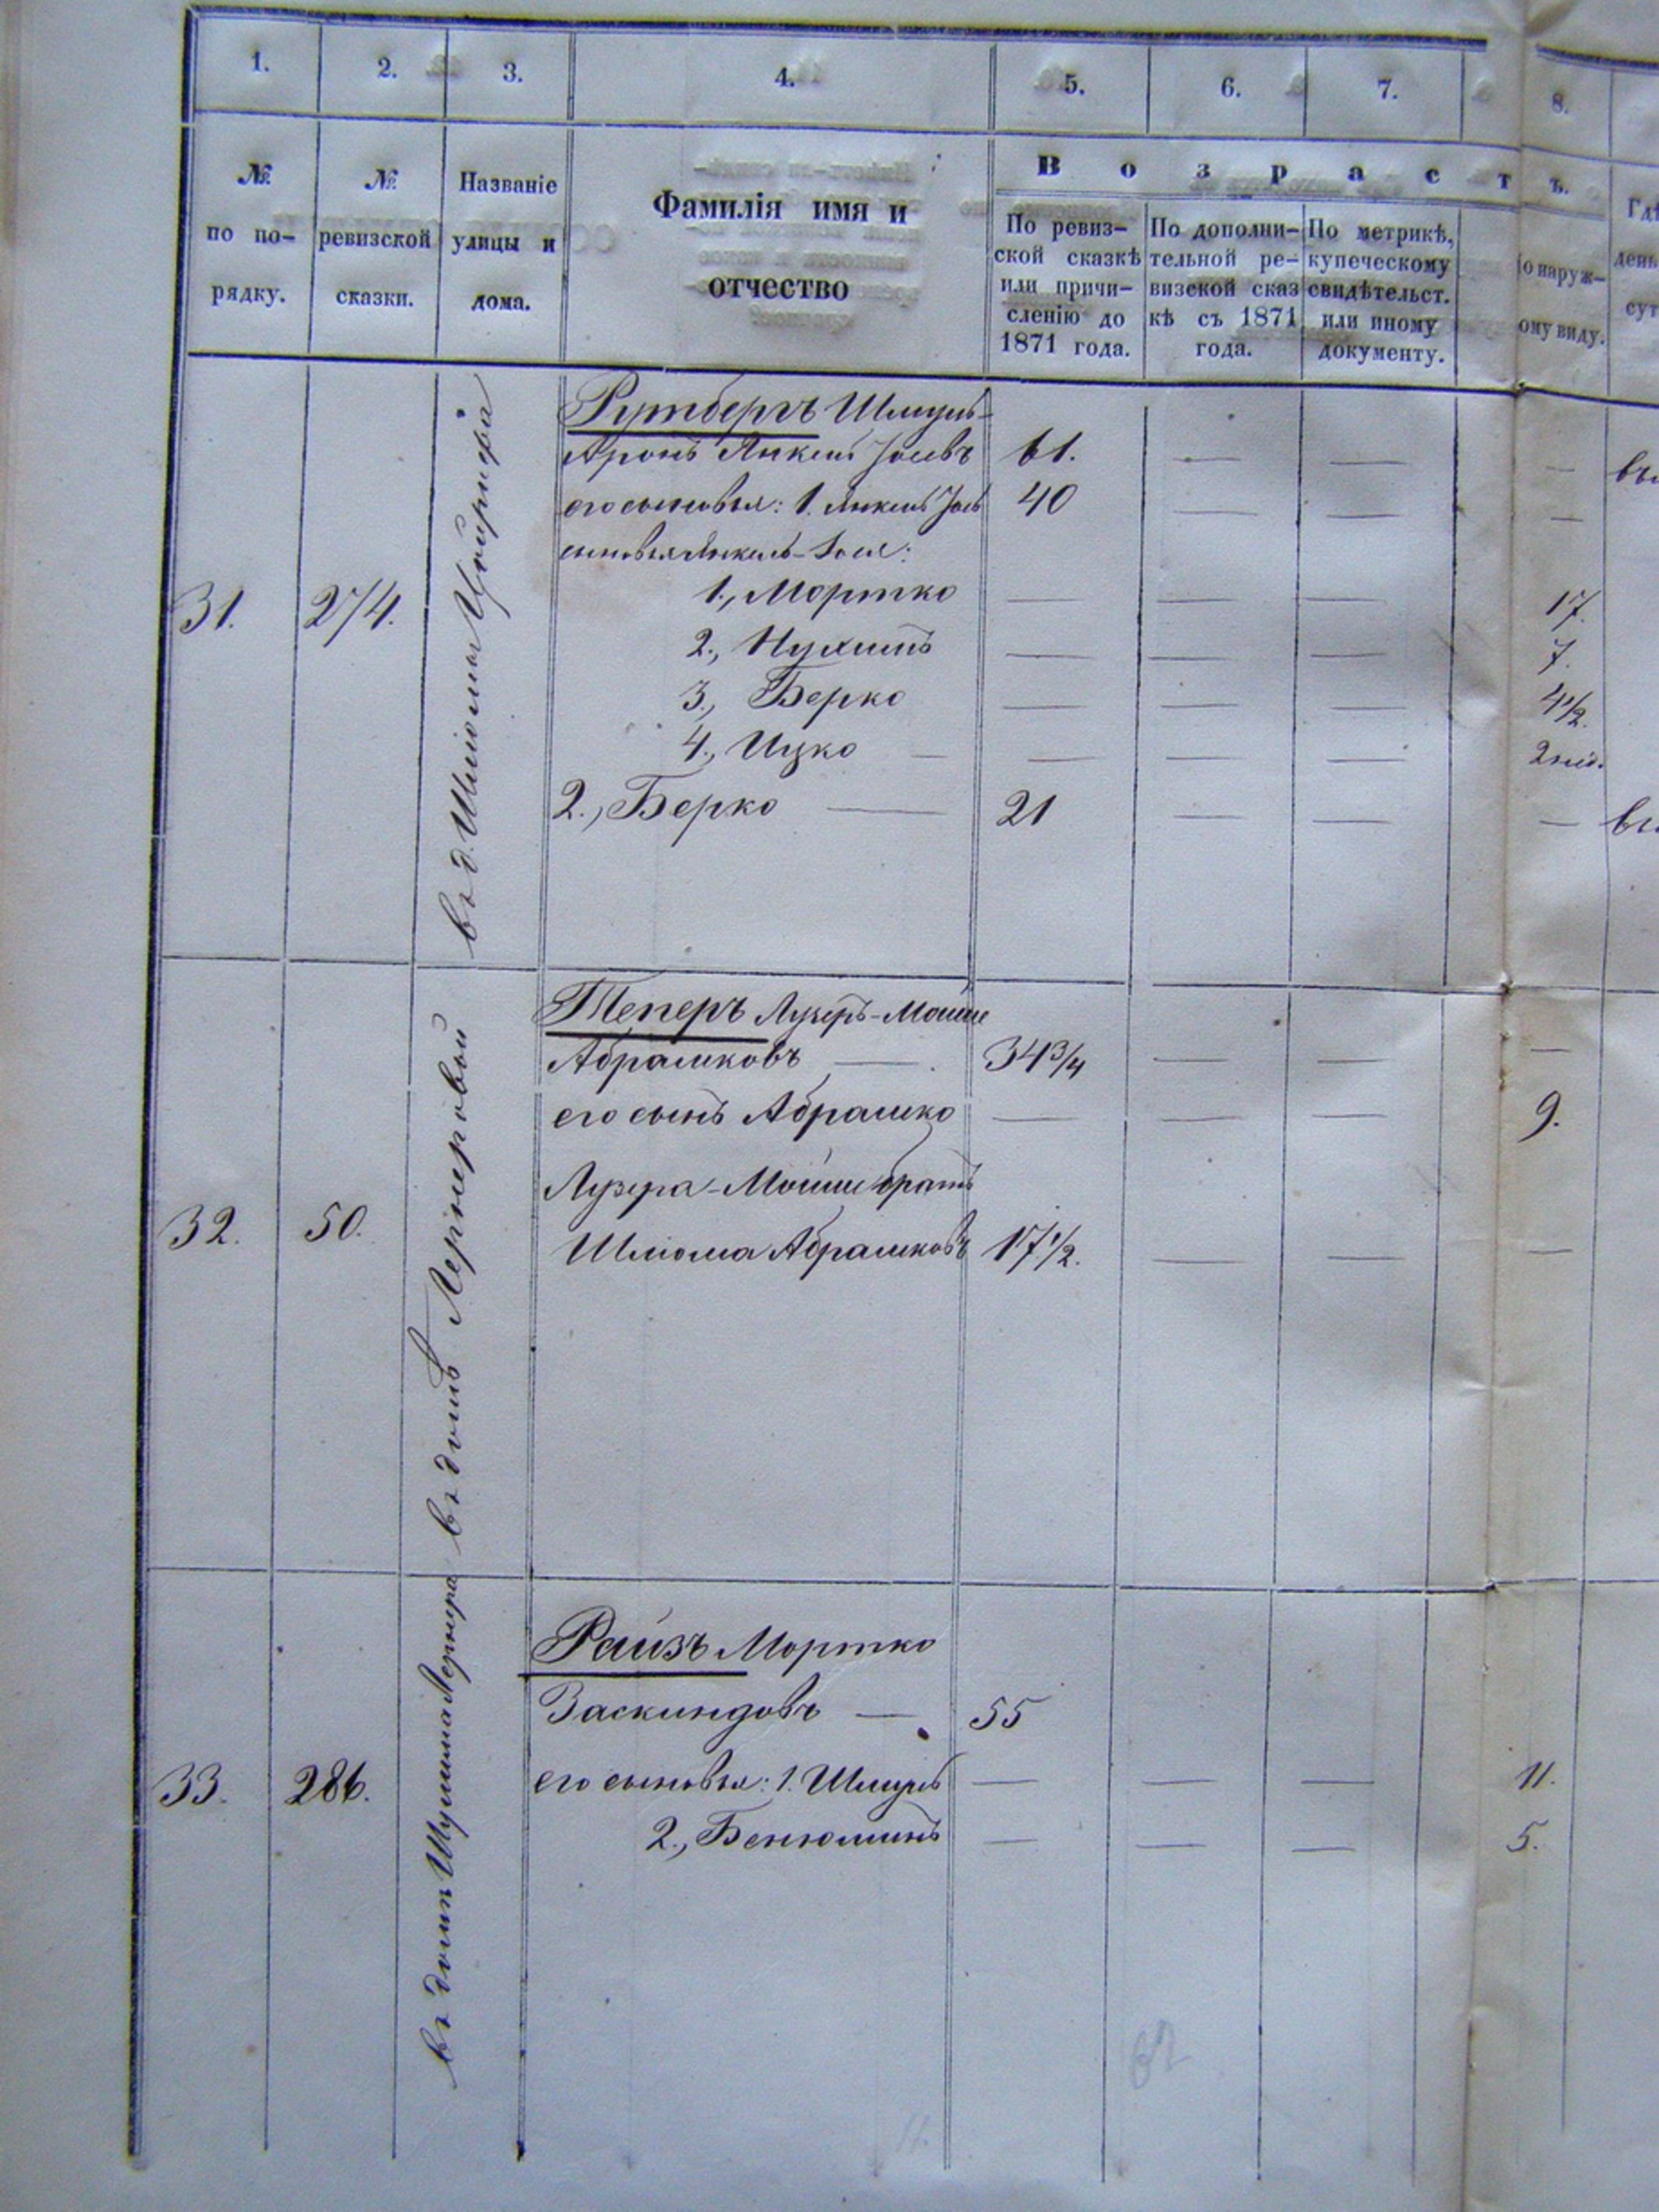 1. 2. 3. 4. 5. 6. 7. 8.
№ по по-рядку.
№ ревизской сказки.
Названіе улицы и дома.
Фамилія имя и отчество
Возрастъ.
По ревиз-
ской сказкѣ
или причи-
сленію до
1871 года.
По дополни-
тельной ре-
визской сказ
кѣ съ 1871
года.
По метрикѣ,
купеческому
свидѣтельст.
или иному
документу.
о наруж-
ому виду.
31. 274.
въ д. Шліомы
Рутбергъ Шмуль-
Аронъ Янкель Іосевъ 61. — — —
его сыновья: 1. Янкель Іось 40 — — —
сыновья Янкель-Іося:
1., Мортко — — — 17.
2., Нухимъ — — — 7.
3., Берко — — — 4½.
4., Ицко — — — — 2 нед.
2., Берко — 21 — — —
32. 50.
въ домѣ Лернеровой
Теперъ Лузеръ-Мошше
Абрамковъ — 34¾ — — —
его сынъ Абрамко — — — 9.
Лузера-Мошше братъ
Шліома Абрамковъ 17½. — — —
33. 286.
въ домѣ Шулима Лернера
Райзъ Мортко
Заскиндовъ — 55
его сыновья: 1. Шмуль — — — 11.
2., Бенюминъ — — — 5.
62